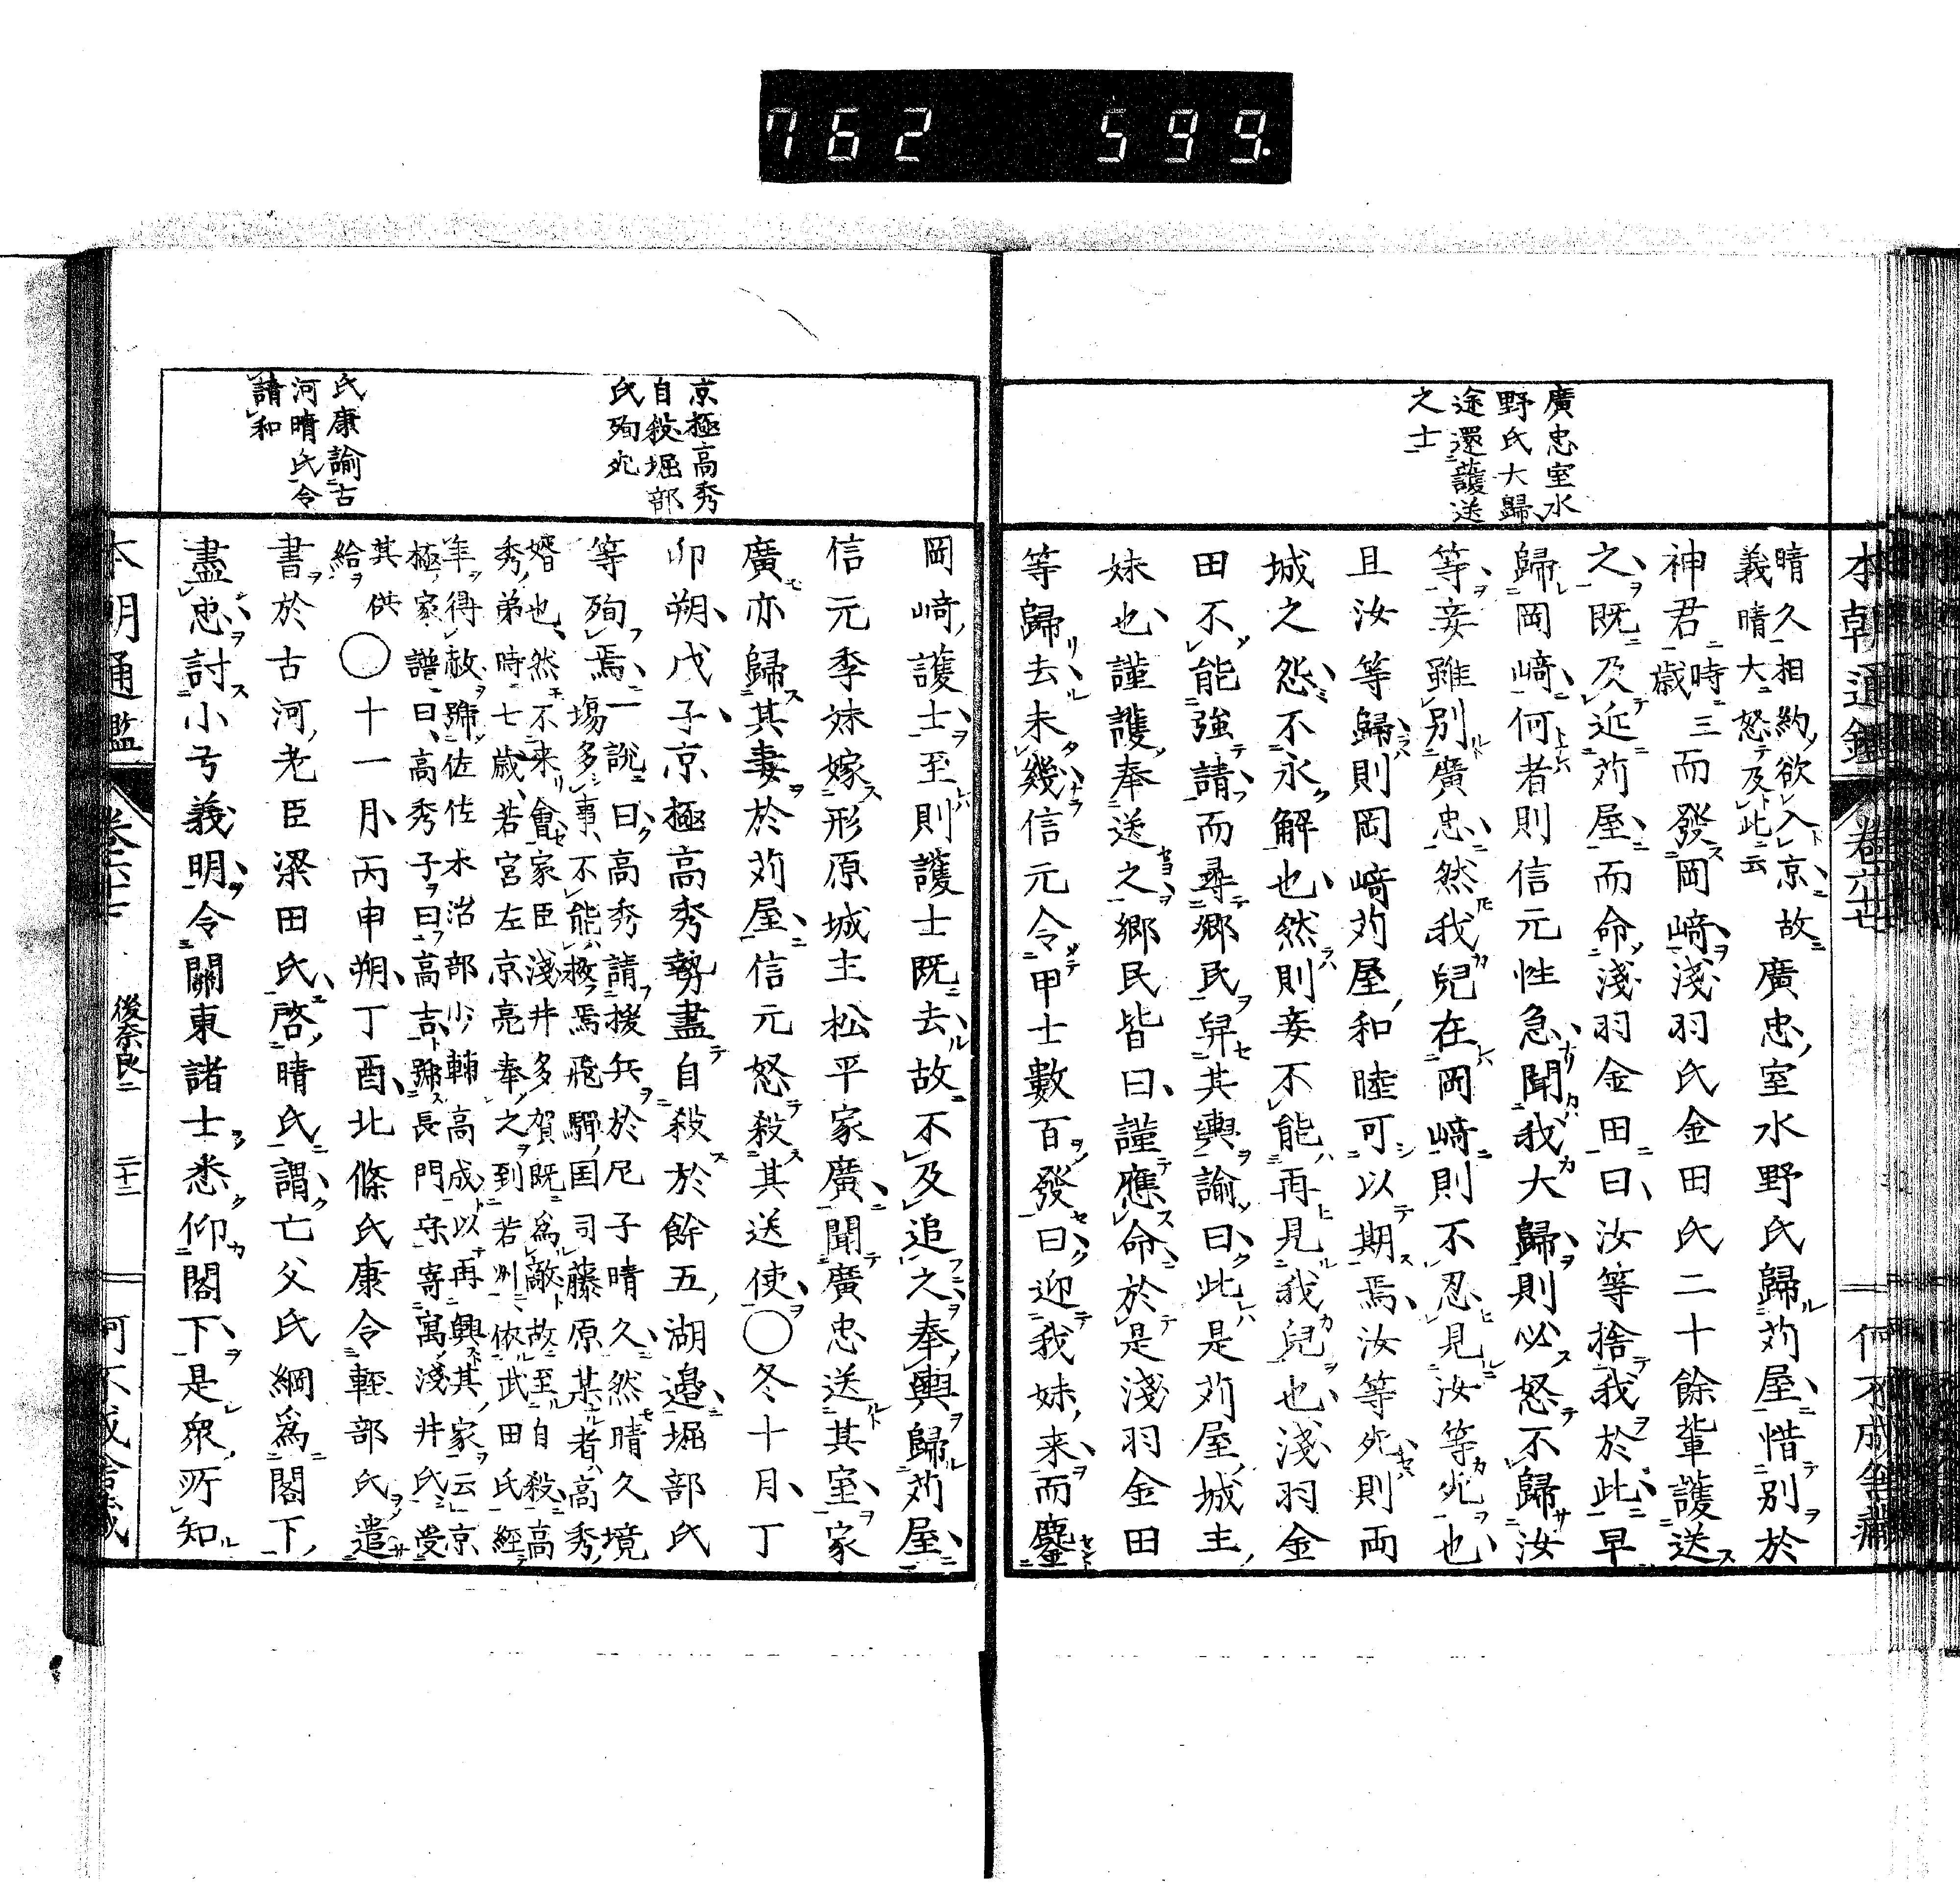 762 599.
本朝通鑑 卷六十七
何不成舎藏
廣忠室水
野氏大歸
途還護送
之士
晴久相約欲入京故
義晴大怒及此云
廣忠室水野氏歸苅屋惜別於
神君時三歳而發岡﨑淺羽氏金田氏二十餘輩護送
之既及近苅屋而命淺羽金田曰汝等捨我於此早
歸岡﨑何者則信元性急聞我大歸則必怒不歸汝
等妾雖別廣忠然我兒在岡﨑則不忍見汝等死也
且汝等歸則岡﨑苅屋和睦可以期焉汝等死則両
城之怨不永解也然則妾不能再見我兒也淺羽金
田不能強請而尋郷民舁其輿諭曰此是苅屋城主
妹也謹護奉送之郷民皆曰謹應命於是淺羽金田
等歸去未幾信元令甲士數百發曰迎我妹来而鏖
京極高秀
自殺堀部
氏殉死
氏康諭古
河晴氏令
請和
岡﨑護士至則護士既去故不及追之奉輿歸苅屋
信元季妹嫁形原城主松平家廣聞廣忠送其室家
廣亦歸其妻於苅屋信元怒殺其送使〇冬十月丁
卯朔戊子京極高秀勢盡自殺於餘五湖邉堀部氏
等殉焉
一說曰高秀請援兵於尼子晴久然晴久境
塲多事不能救焉飛驒国司藤原某者高秀
婿也然不来會家臣淺井多賀既為敵故至自殺高
秀弟時七歳若宮左京亮奉之到若州依武田氏經
年得赦號佐佐木治部少輔高成以再興其家云京
極家譜曰高秀子曰高吉號長門守寄寓淺井氏受
其供
給
〇十一月丙申朔丁酉北條氏康令輕部氏遣
書於古河老臣梁田氏啓晴氏謂亡父氏綱為閣下
盡忠討小弓義明令關東諸士悉仰閣下是衆所知
本朝通鑑 後奈良二 二十二